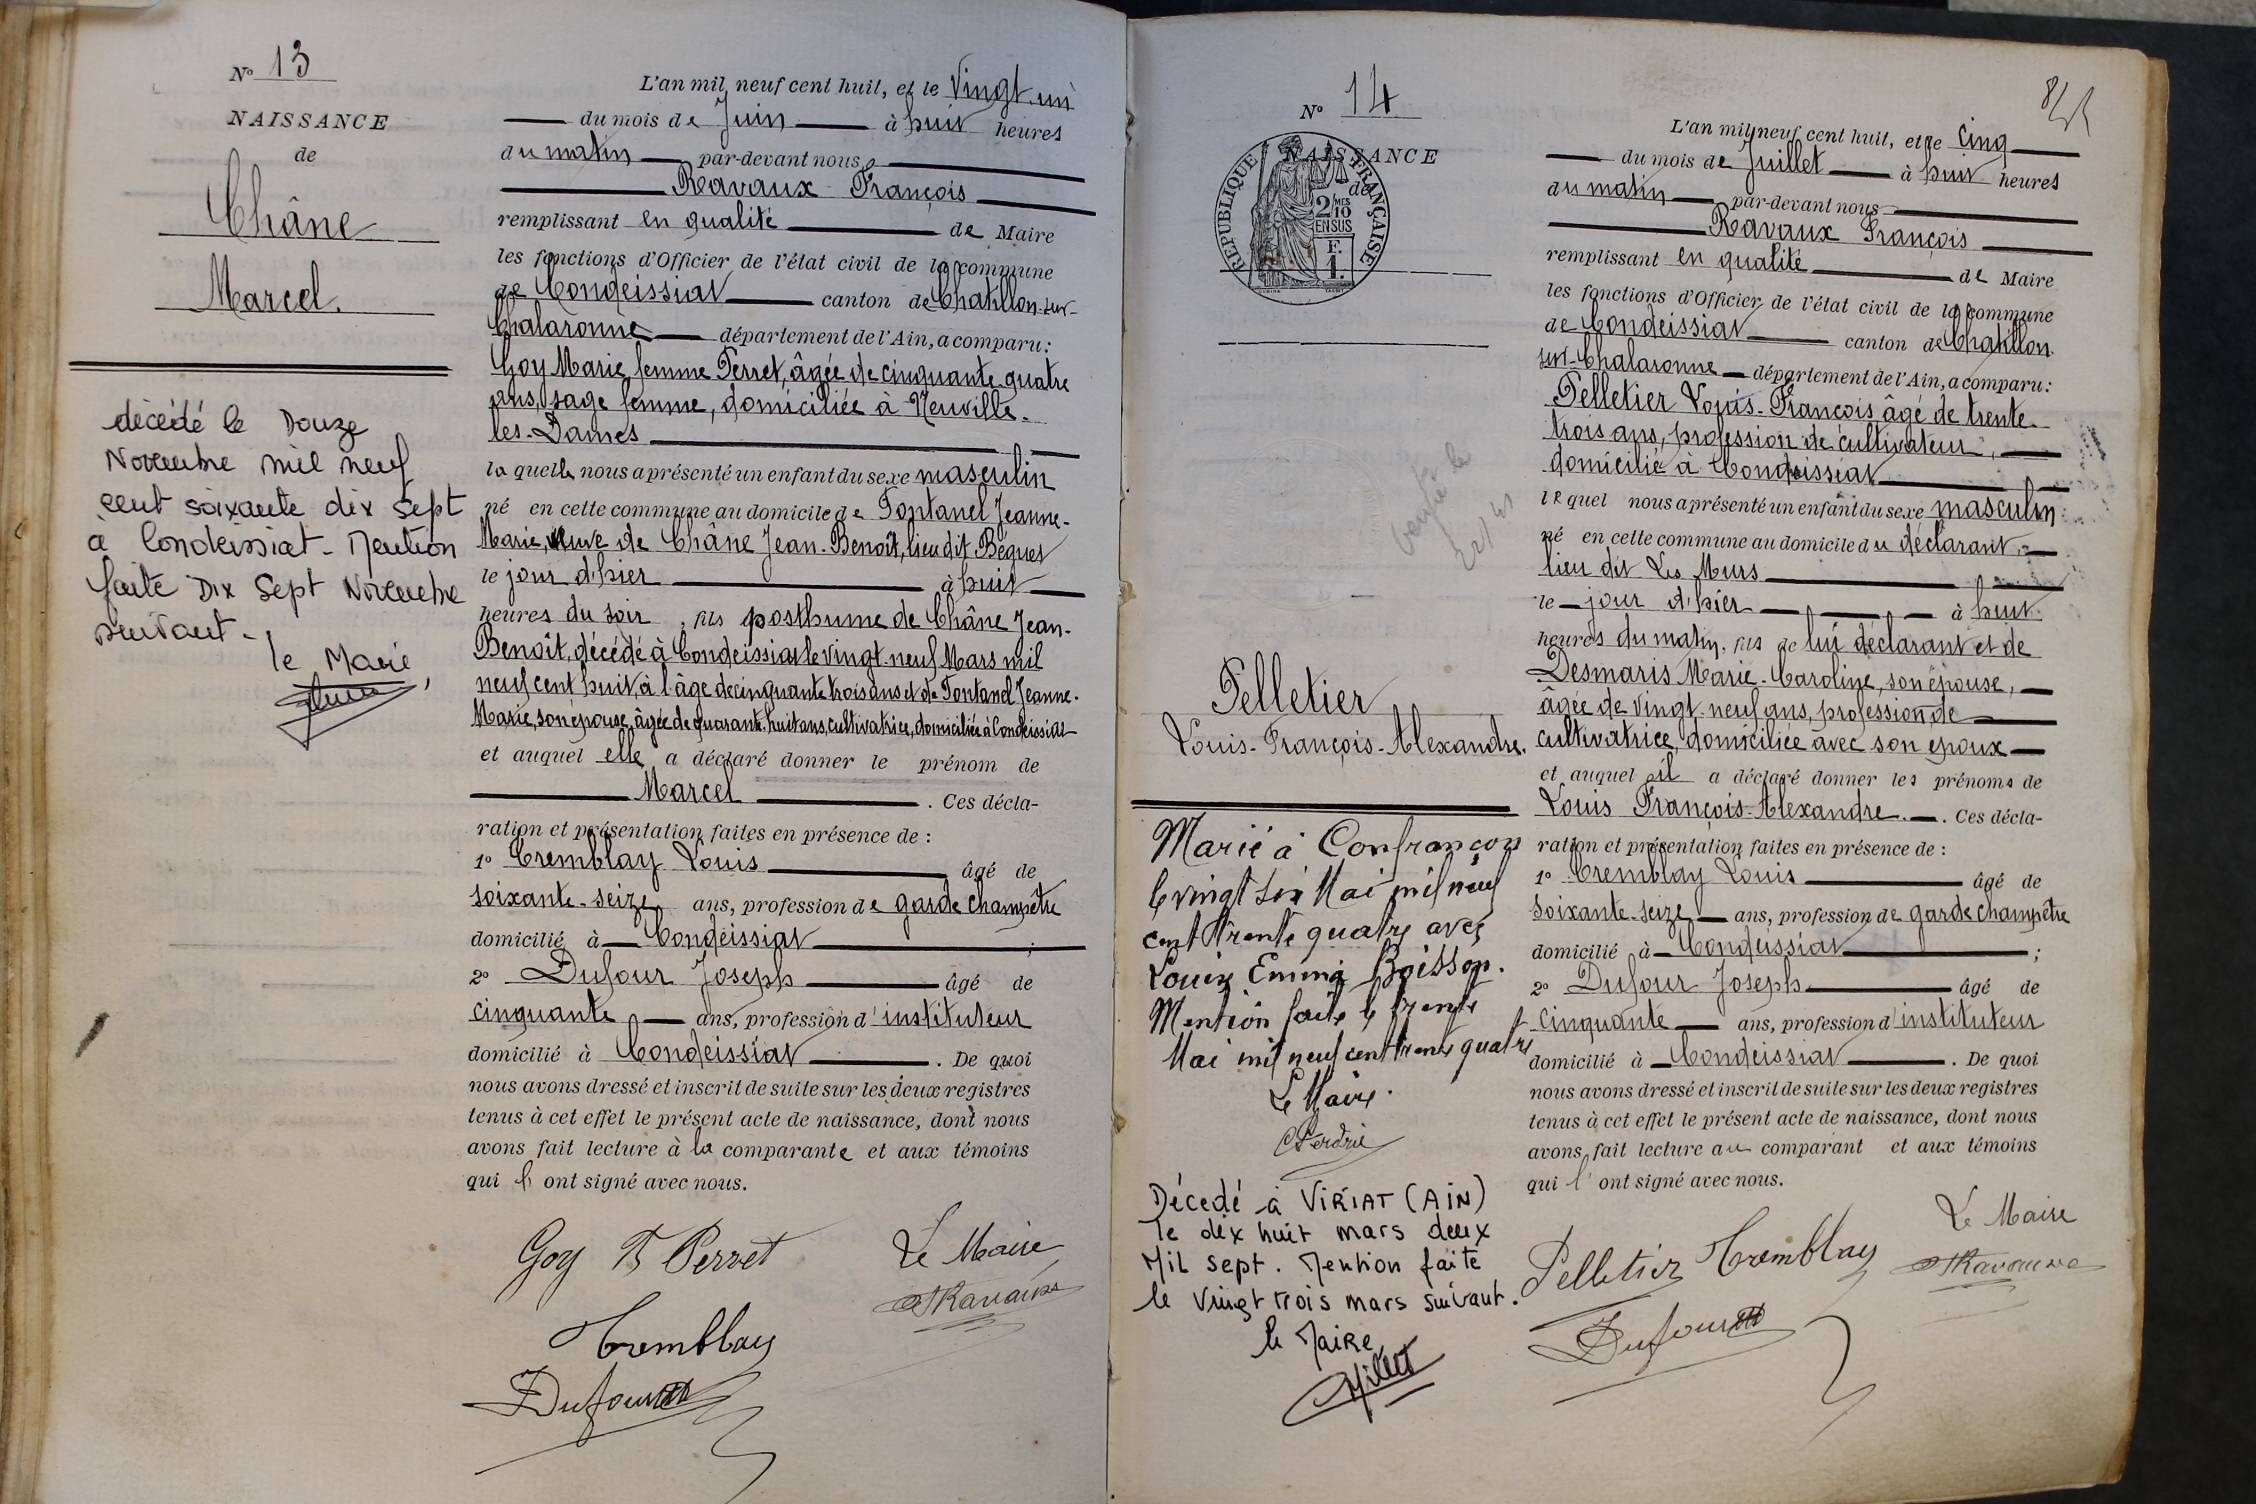 N° 13
NAISSANCE
de
Châne
Marcel.
décédé le Douze
Novembre mil neuf
cent soixante dix sept
à Condeissiat - Mention
faite Dix Sept Novembre
suivant -
le Maire,
L'an mil neuf cent huit, et le vingt-un
du mois de Juin à huit heures
du matin par-devant nous,
Ravaux François
remplissant en qualité de Maire
les fonctions d'Officier de l'état civil de la commune
de Condeissiat canton de Chatillon-sur-
Chalaronne département de l'Ain, a comparu :
Goy Marie, femme Perret, âgée de cinquante-quatre
ans, sage femme, domiciliée à Neuville-
les-Dames
laquelle nous a présenté un enfant du sexe masculin
né en cette commune au domicile de Fontanel Jeanne-
Marie, veuve de Châne Jean-Benoît, lieu dit Béguet
le jour d'hier à huit
heures du soir, fils posthume de Châne Jean-
Benoît, décédé à Condeissiat le vingt-neuf Mars mil
neuf cent huit, à l'âge de cinquante trois ans et de Fontanel Jeanne-
Marie, son épouse, âgée de quarante-huit ans, cultivatrice, domiciliée à Condeissiat
et auquel elle a déclaré donner le prénom de
Marcel. Ces décla-
ration et présentation faites en présence de :
1° Tremblay Louis âgé de
soixante-seize ans, profession de garde champêtre
domicilié à Condeissiat ;
2° Dufour Joseph âgé de
cinquante ans, profession d'instituteur
domicilié à Condeissiat. De quoi
nous avons dressé et inscrit de suite sur les deux registres
tenus à cet effet le présent acte de naissance, dont nous
avons fait lecture à la comparante et aux témoins
qui l'ont signé avec nous.
Goy F Perret
Le Maire,
Ravaux
Tremblay
Dufour
N° 14
NAISSANCE
de
REPUBLIQUE FRANÇAISE
2 MES
10
EN SUS
F.
1.
Pelletier
Louis-François-Alexandre.
Marié à Confrançon
le vingt six Mai mil neuf
cent trente quatre avec
Louise Emma Boisson.
Mention faite le trente
Mai mil neuf cent trente quatre
Le Maire.
Décédé à VIRIAT (AIN)
le dix huit mars deux
Mil sept. Mention faite
le vingt trois mars suivant.
le Maire
L'an mil neuf cent huit, et le cinq
du mois de Juillet à huit heures
du matin par-devant nous
Ravaux François
remplissant en qualité de Maire
les fonctions d'Officier de l'état civil de la commune
de Condeissiat canton de Chatillon-
sur-Chalaronne département de l'Ain, a comparu :
Pelletier Louis-François âgé de trente-
trois ans, profession de cultivateur,
domicilié à Condeissiat
lequel nous a présenté un enfant du sexe masculin
né en cette commune au domicile du déclarant,
lieu dit Les Murs
le jour d'hier à huit
heures du matin, fils de lui déclarant et de
Desmaris Marie-Caroline, son épouse,
âgée de vingt-neuf ans, profession de
cultivatrice, domiciliée avec son époux
et auquel il a déclaré donner les prénoms de
Louis François-Alexandre. Ces décla-
ration et présentation faites en présence de :
1° Tremblay Louis âgé de
soixante-seize ans, profession de garde champêtre
domicilié à Condeissiat ;
2° Dufour Joseph âgé de
cinquante ans, profession d'instituteur
domicilié à Condeissiat. De quoi
nous avons dressé et inscrit de suite sur les deux registres
tenus à cet effet le présent acte de naissance, dont nous
avons fait lecture au comparant et aux témoins
qui l'ont signé avec nous.
Le Maire
Pelletier Tremblay Ravaux
Dufour